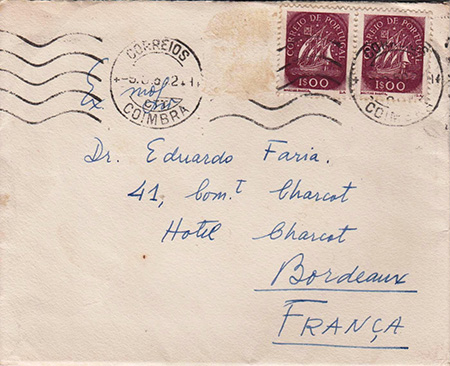 CORREIO DE PORTUGAL CORREIO DE PORTUGAL
1$00 1$00
CORREIOS
COIMBRA COIMBRA
Ex
Dr. Eduardo Faria.
41, Com.t Charcot
Hotel Charcot
Bordeaux
FRANÇA